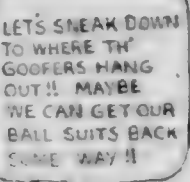 LET'S SNEAK DOWN
TO WHERE TH'
GOOFERS HANG
OUT!! MAYBE
WE CAN GET OUR
BALL SUITS BACK
SOME WAY!!